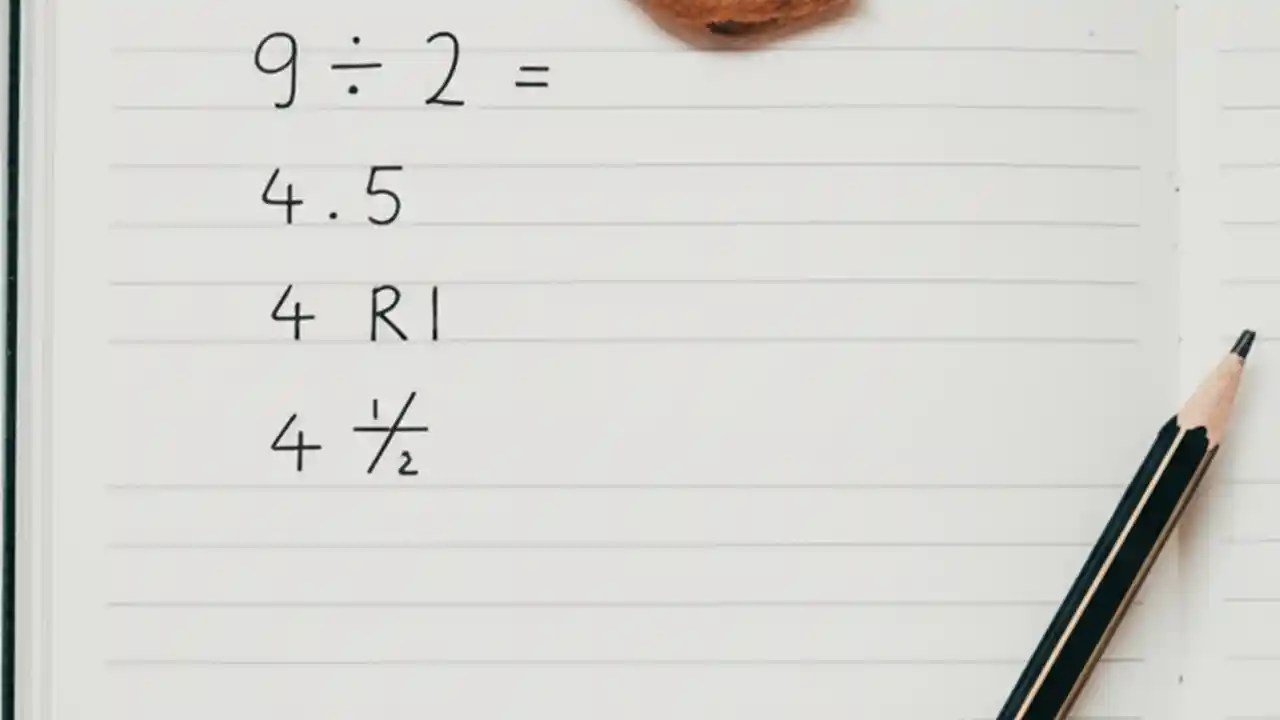 9 ÷ 2 =
4.5
4 R1
4 1/2